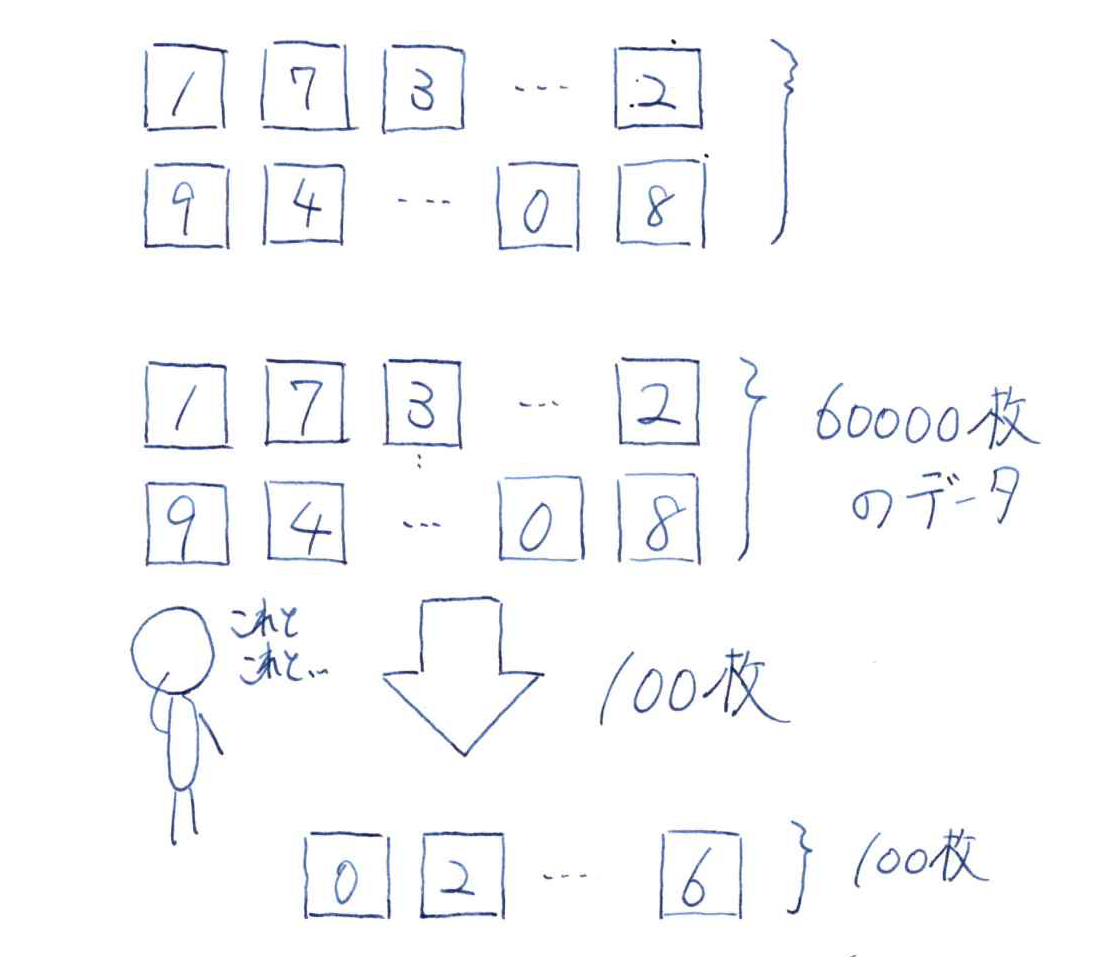 1 7 3 ... 2
9 4 ... 0 8
1 7 3 ... 2
9 4 ... 0 8
60000枚
のデータ
これと
これと...
100枚
0 2 ... 6
100枚